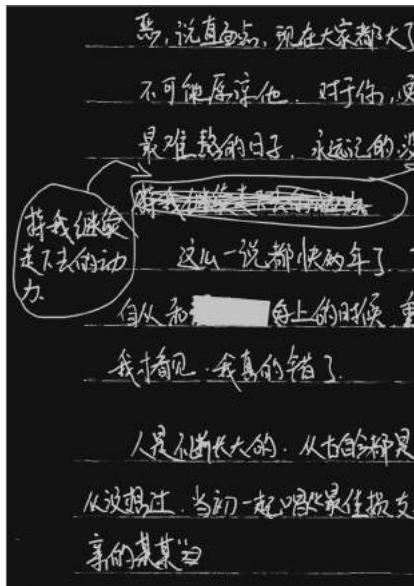 恶,说直白点,现在大家都大了
不可能原谅他. 对于你,更
最难熬的日子, 永远记的没
持我继续走下去的动力
持我继续
走下去的动
力.
这么一说都快两年了
自从和 身上的时候 重
我才看见.我真的错了.
人是不断长大的. 从古自今都是
从没想过 当初一起唱《最佳损友
亲的某某》